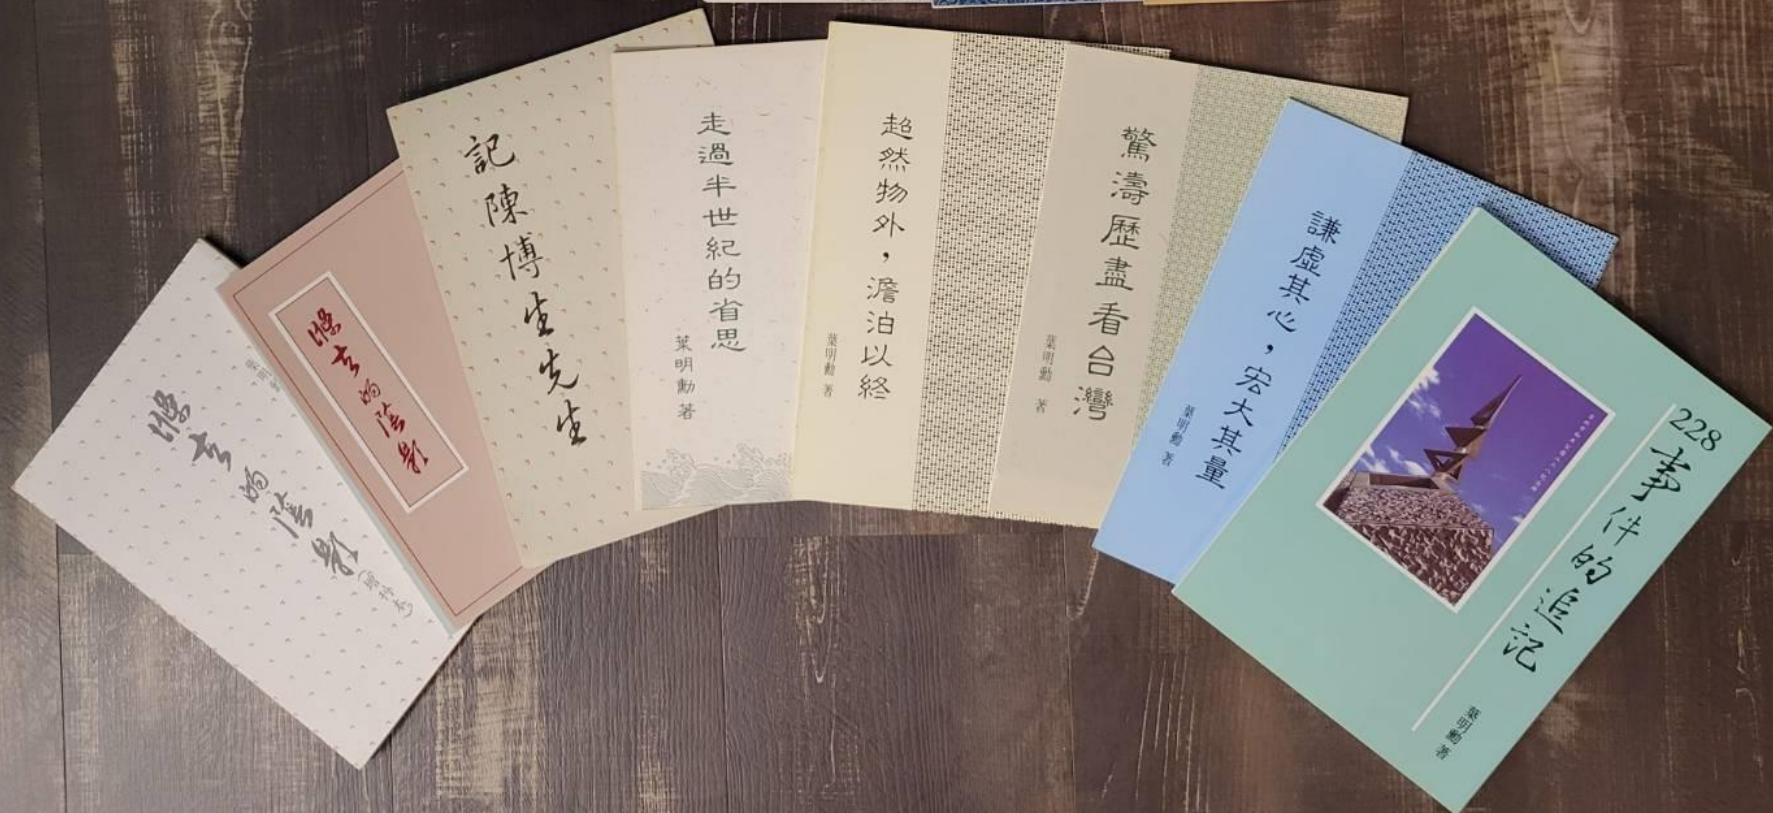 葉明
滌去的陰影
滌去的陰影
記陳博生先生
走過半世紀的省思
葉明勳著
超然物外，澹泊以終
葉明勳 著
驚濤歷盡看台灣
葉明勳 著
謙虛其心，宏大其量
葉明勳 著
228事件的追記
葉明勳 著